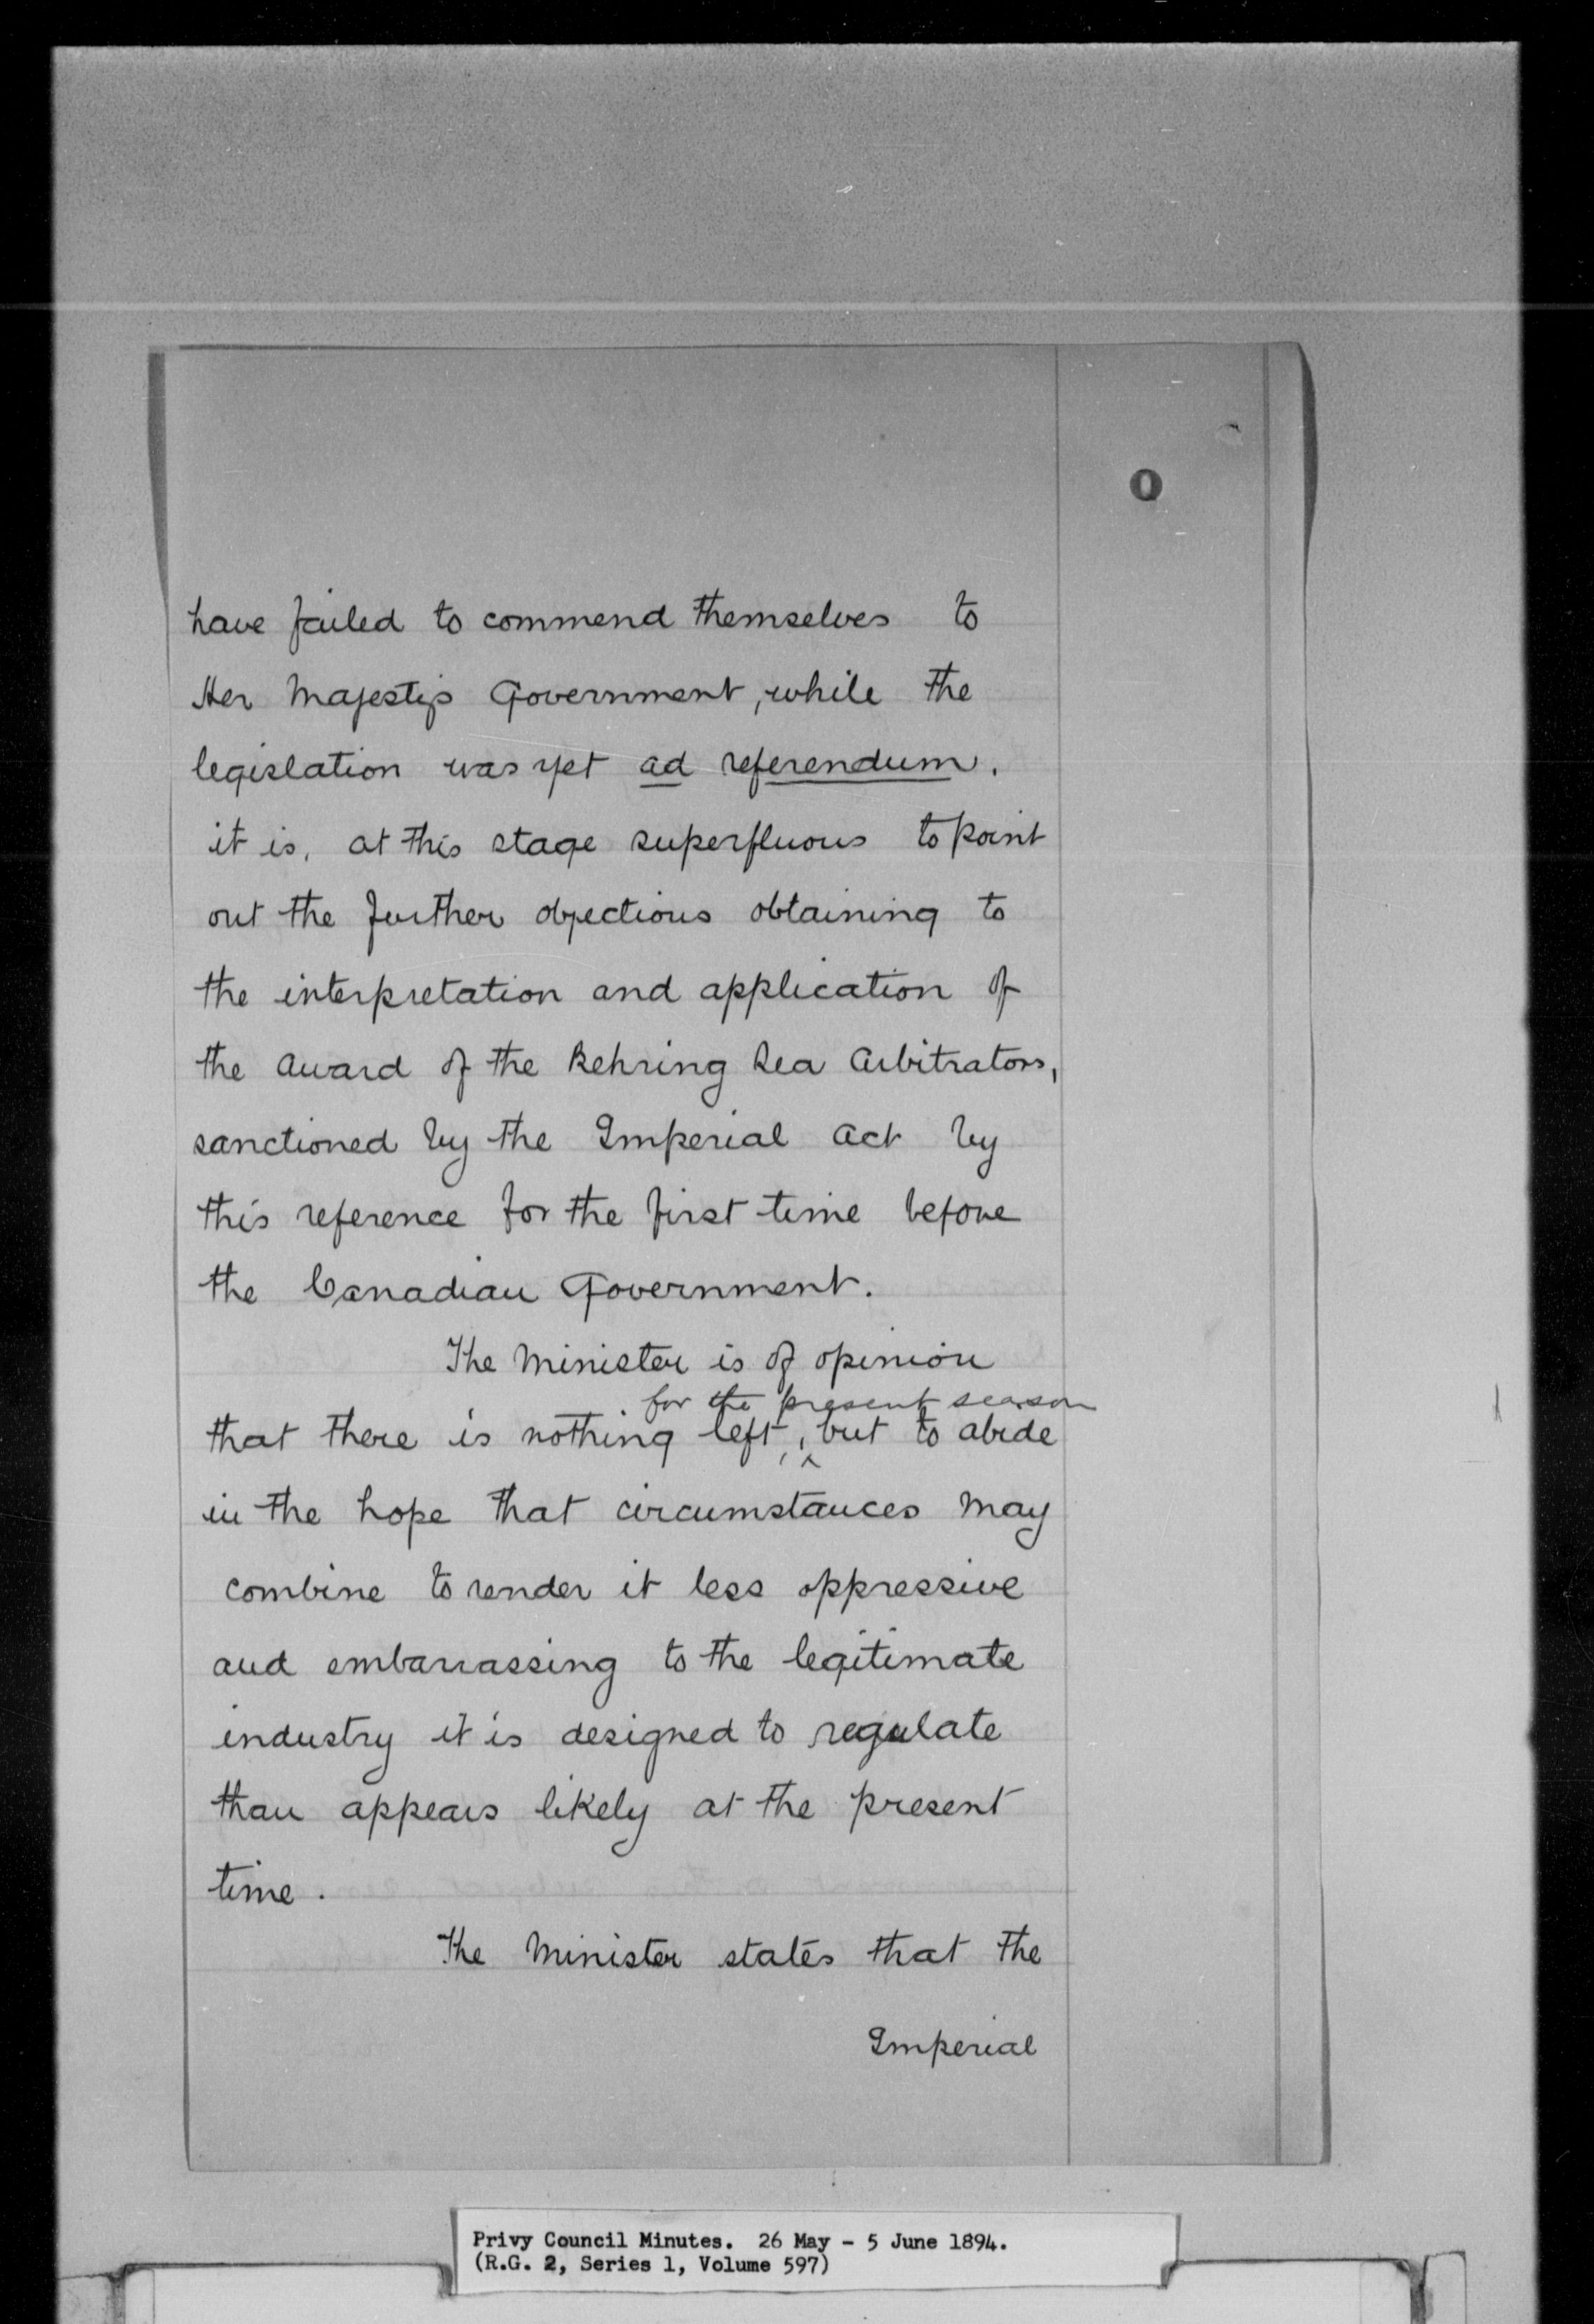 O
have failed to commend themselves to
Her Majesty's Government, while the
legislation was yet ad referendum.
it is, at this stage superfluous to point
out the further objections obtaining to
the interpretation and application of
the award of the Behring Sea Arbitrators,
sanctioned by the Imperial Act by
this reference for the first time before
the Canadian Government.
The Minister is of opinion
for the present season
that there is nothing left, but to abide
in the hope that circumstances may
combine to render it less oppressive
and embarrassing to the legitimate
industry it is designed to regulate
than appears likely at the present
time.
The Minister states that the
Imperial
Privy Council Minutes. 26 May - 5 June 1894.
(R.G. 2, Series 1, Volume 597)